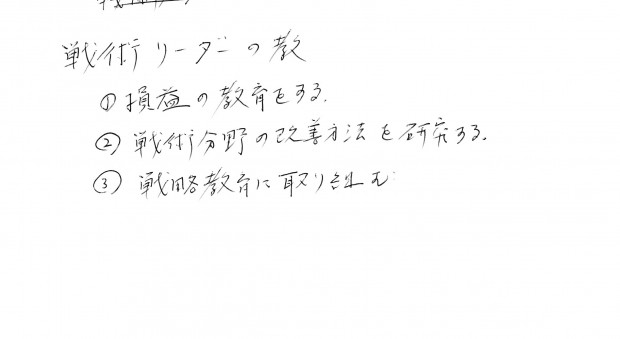 戦術リーダーの教
① 損益の教育をする.
② 戦術分野の改善方法を研究する.
③ 戦略教育に取り組む